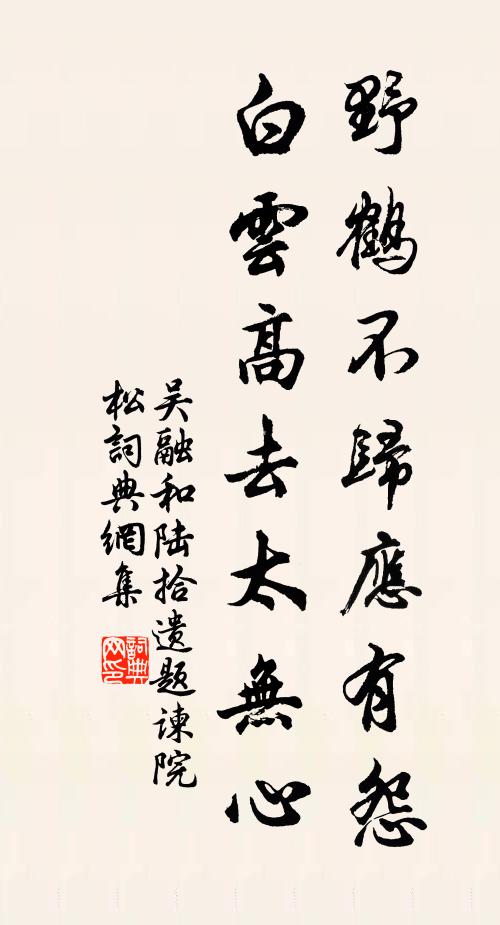 野鶴不歸應有怨
白雲高去太無心
吴融和陸拾遺題諫院
松詞典網集
詞典网印